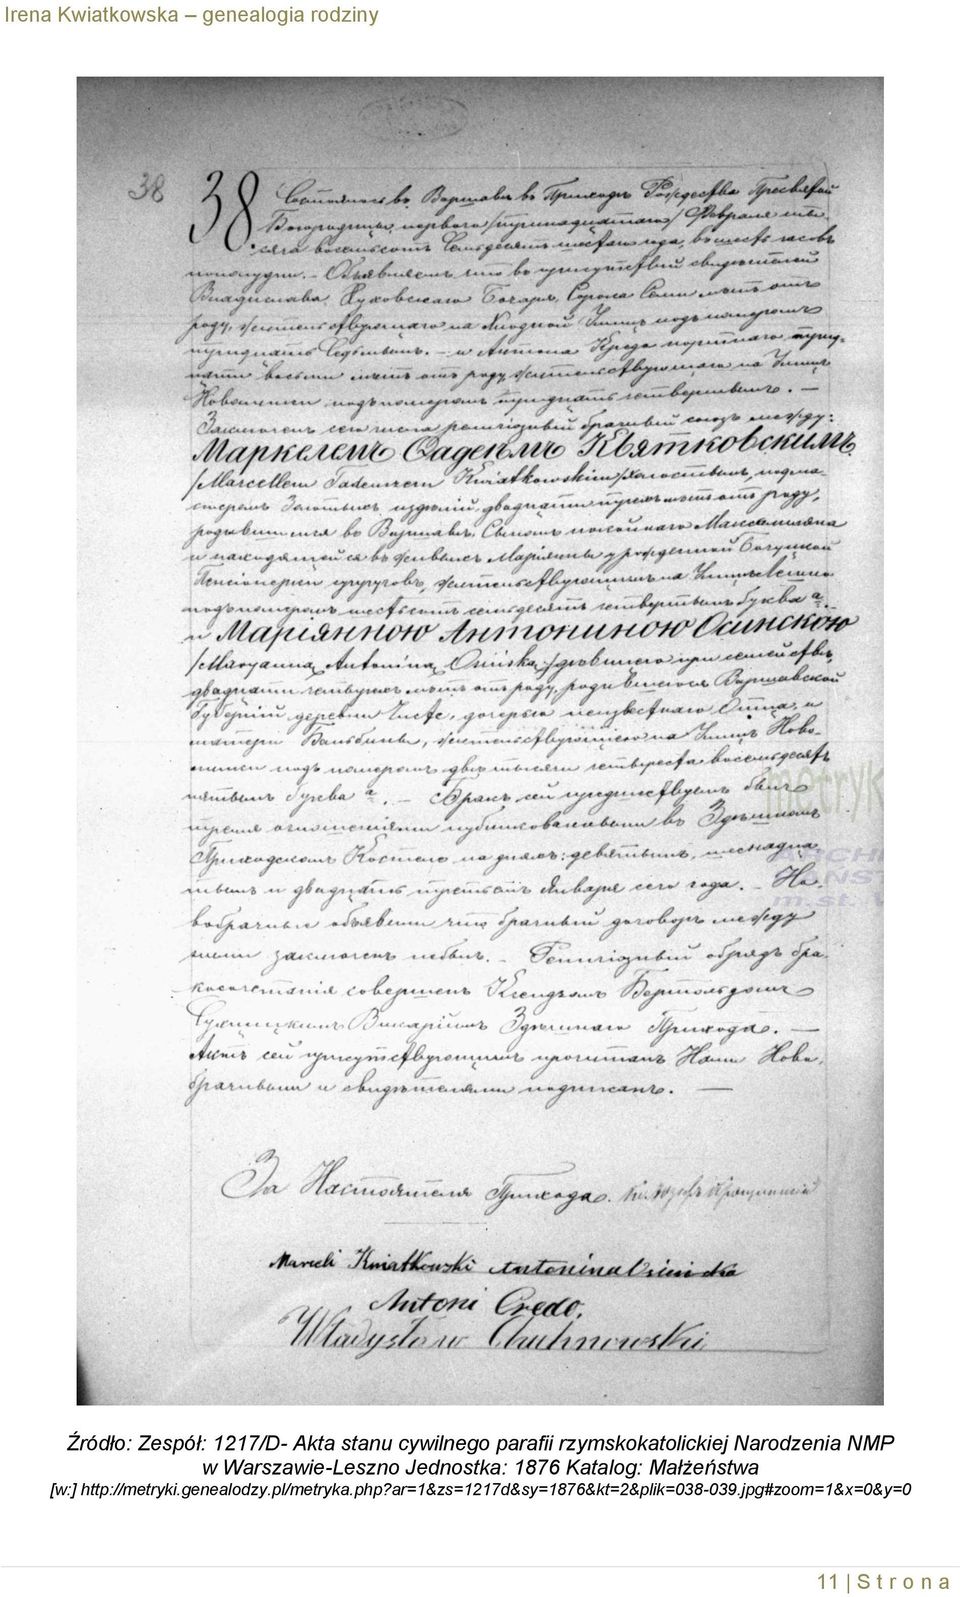 Irena Kwiatkowska – genealogia rodziny
38
38. Состоялось въ Варшавѣ въ Приходѣ Рождества Пресвятой
Богородицы, перваго /тринадцатаго/ Февраля мѣ-
сяца восемьсотъ семьдесятъ шестаго года, въ шесть часовъ
пополудни. – Объявляемъ что въ присутствіи свидѣтелей
Владислава Бочаря, сорока семи лѣтъ отъ
роду, жительствующаго на Хлодной Улицѣ подъ номеромъ
тридцать седьмымъ. – и Антона Кредо трид-
цати восьми лѣтъ отъ роду, жительствующаго на Улицѣ
Новолипки подъ номеромъ тридцать четвертымъ. –
Заключенъ сего числа религіозный брачный союзъ между:
Маркелемъ Фадеемъ Квятковскимъ
/Marcellem Tadeuszem Kwiatkowskim/ холостымъ, подма-
стеромъ золотыхъ издѣлій, двадцати трехъ лѣтъ отъ роду,
родившимся въ Варшавѣ, сыномъ покойнаго Максимиліана
и находящейся въ живыхъ Маріанны урожденной
супруговъ, жительствующимъ на Улицѣ Лешно
подъ номеромъ шестьсотъ семьдесятъ четвертымъ буква а.
и Маріянною Антониною Осинскою
/Maryanną Antoniną Osińską/ дѣвицею при семействѣ,
двадцати четырехъ лѣтъ отъ роду, родившеюся Варшавской
Губерніи деревни Чисте, дочерью неизвѣстнаго Отца, и
матери Бальбины, жительствующею на Улицѣ Ново-
липки подъ номеромъ двѣ тысячи четыреста восемьдесятъ
пятымъ буква а. – Бракъ сей предшествуемъ былъ
тремя оглашеніями публикованными въ Здѣшнемъ
Приходскомъ Костелѣ на дняхъ: девятымъ, шеснадца-
тымъ и двадцать третьемъ Января сего года. – Но-
вобрачные объявили что брачный договоръ между
ними заключенъ небылъ. – Религіозный обрядъ бра-
косочетанія совершенъ Ксендзомъ Бертольдомъ
Викаріемъ Здѣшняго Прихода. –
Актъ сей присутствующимъ прочитанъ Нами Ново-
брачными и свидѣтелями подписанъ. –
За Настоятеля Прихода.
Marceli Kwiatkowski Antonina Osińska
Antoni Credo.
Władysław Chuchnowski
metryk
ARCHI
PAŃST
m.st. W
Źródło: Zespół: 1217/D- Akta stanu cywilnego parafii rzymskokatolickiej Narodzenia NMP
w Warszawie-Leszno Jednostka: 1876 Katalog: Małżeństwa
[w:] http://metryki.genealodzy.pl/metryka.php?ar=1&zs=1217d&sy=1876&kt=2&plik=038-039.jpg#zoom=1&x=0&y=0
11 | S t r o n a